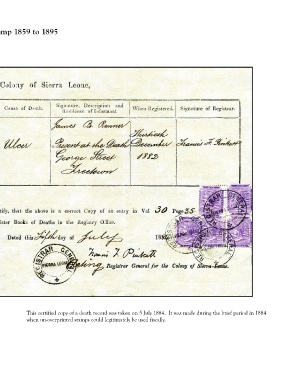 mp 1859 to 1895
Colony of Sierra Leone,
Cause of Death.
Signature, Description and Residence of Informant.
When Registered.
Signature of Registrar.
Ulcer
James B. Renner
Present at the Death
George Street
Freetown
Thirtieth
December
1882
Francis F.
tify, that the above is a correct Copy of an entry in Vol 30 Page 35
ister Books of Deaths in the Registry Office.
Dated this Fifth day of July 188
Francis F.
Acting Registrar General for the Colony of Sierra Leone.
REGISTRAR GENERAL
SIERRA LEONE
This certified copy of a death record was taken on 5 July 1884. It was made during the brief period in 1884
when un-overprinted stamps could legitimately be used fiscally.